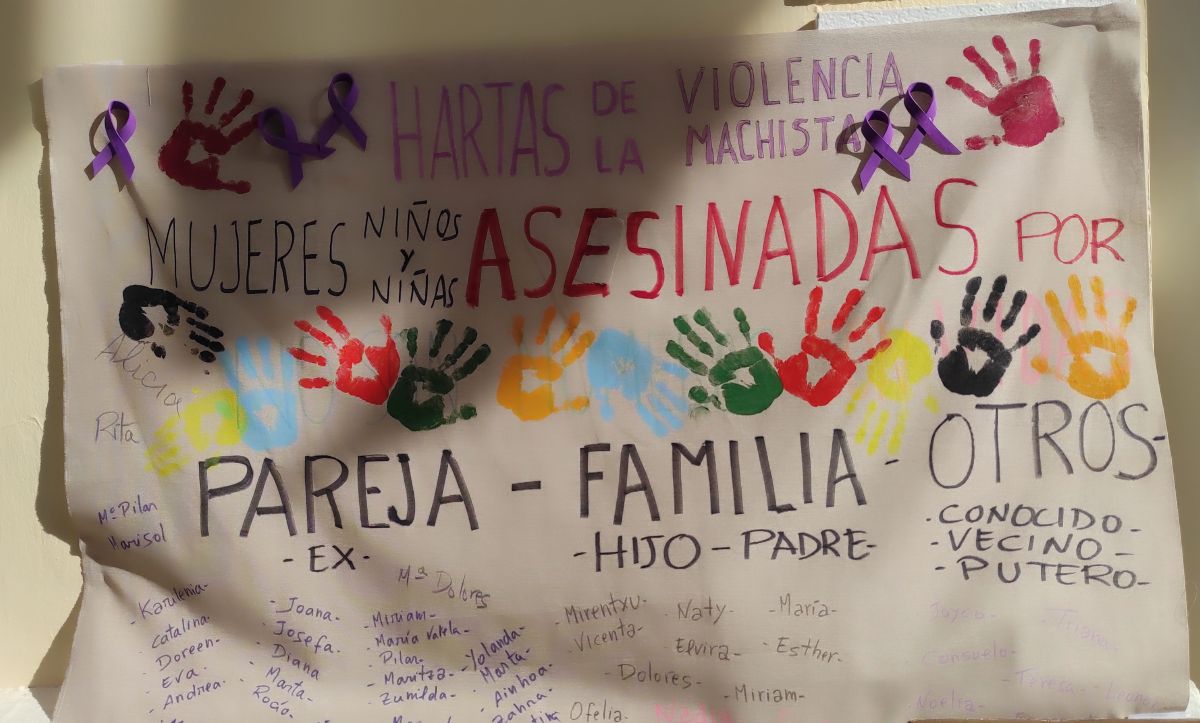 HARTAS DE LA VIOLENCIA MACHISTA
MUJERES NIÑOS Y NIÑAS ASESINADAS POR
Alicia
Rita
Mª Pilar
Marisol
PAREJA - FAMILIA - OTROS-
- EX -
- HIJO - PADRE-
- CONOCIDO-
- VECINO -
- PUTERO-
Mª Dolores
- Karilenia-
- Catalina-
- Doreen-
- Eva-
- Andrea-
- Joana-
- Josefa-
- Diana
- Marta-
- Rocío-
- Miriam-
- María Varela-
- Pilar-
- Maritza-
- Zunilda-
- Yolanda-
- Marta-
- Ainhoa
- Mirentxu-
- Vicenta-
- Dolores-
Ofelia-
- Naty-
Elvira-
- Miriam-
- María-
- Esther-
Nadia
Joyce-
Consuelo-
Noelia-
- Triana
- Teresa-
- Leonor